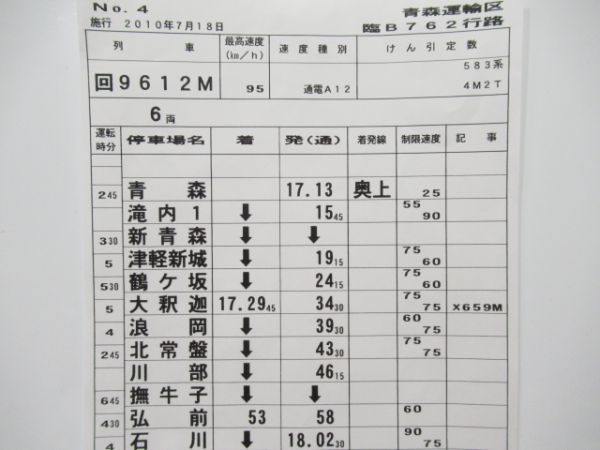 No. 4 青森運輸区
施行 2010年7月18日 臨B762行路
列車 最高速度(km/h) 速度種別 けん引定数
回9612M 95 通電A12 583系 4M2T
6両
運転時分 停車場名 着 発(通) 着発線 制限速度 記事
245 青森 17.13 奥上 25
滝内1 ↓ 1545 55 90
330 新青森 ↓ ↓
5 津軽新城 ↓ 1915 75 60
530 鶴ケ坂 ↓ 2415 75 60
5 大釈迦 17.2945 3430 75 75 ×659M
4 浪岡 ↓ 3930 60 75
245 北常盤 ↓ 4330 75 75
川部 ↓ 4615
645 撫牛子 ↓ ↓
430 弘前 53 58 60
4 石川 ↓ 18.0230 90 75